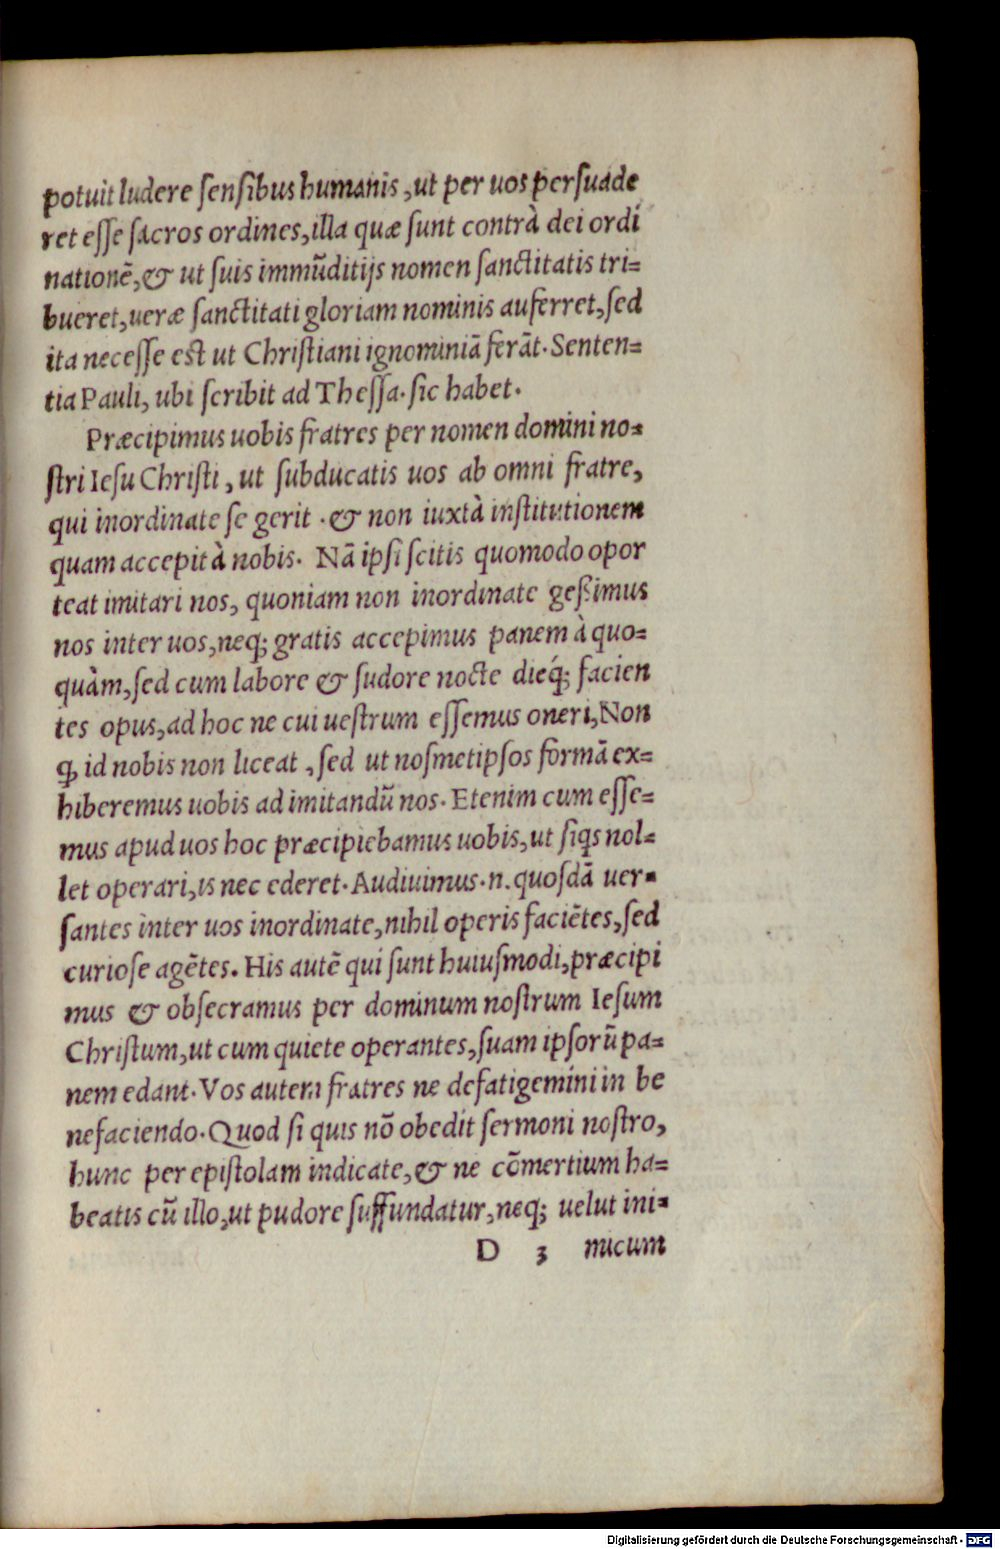 potuit ludere ſenſibus humanis, ut per uos perſuade
ret eſſe ſacros ordines, illa quæ ſunt contrà dei ordi
nationẽ, & ut ſuis immũditijs nomen ſanctitatis tri=
bueret, ueræ ſanctitati gloriam nominis auferret, ſed
ita neceſſe eſt ut Chriſtiani ignominiã ferãt. Senten=
tia Pauli, ubi ſcribit ad Theſſa. ſic habet.
Præcipimus uobis fratres per nomen domini no=
ſtri Ieſu Chriſti, ut ſubducatis uos ab omni fratre,
qui inordinate ſe gerit. & non iuxtà inſtitutionem
quam accepit à nobis. Nã ipſi ſcitis quomodo opor
teat imitari nos, quoniam non inordinate geßimus
nos inter uos, neq; gratis accepimus panem à quo=
quàm, ſed cum labore & ſudore nocte dieq́; facien
tes opus, ad hoc ne cui ueſtrum eſſemus oneri, Non
ꝙ id nobis non liceat, ſed ut noſmetipſos formã ex=
hiberemus uobis ad imitandũ nos. Etenim cum eſſe=
mus apud uos hoc præcipiebamus uobis, ut ſiqs nol=
let operari, is nec ederet. Audiuimus.n. quoſdã uer=
ſantes inter uos inordinate, nihil operis faciẽtes, ſed
curioſe agẽtes. His autẽ qui ſunt huiuſmodi, præcipi
mus & obſecramus per dominum noſtrum Ieſum
Chriſtum, ut cum quiete operantes, ſuam ipſorũ pa=
nem edant. Vos autem fratres ne defatigemini in be
nefaciendo. Quod ſi quis nõ obedit ſermoni noſtro,
hunc per epiſtolam indicate, & ne cõmertium ha=
beatis cũ illo, ut pudore ſuffundatur, neq; uelut ini=
D 3 micum
Digitalisierung gefördert durch die Deutsche Forschungsgemeinschaft - DFG